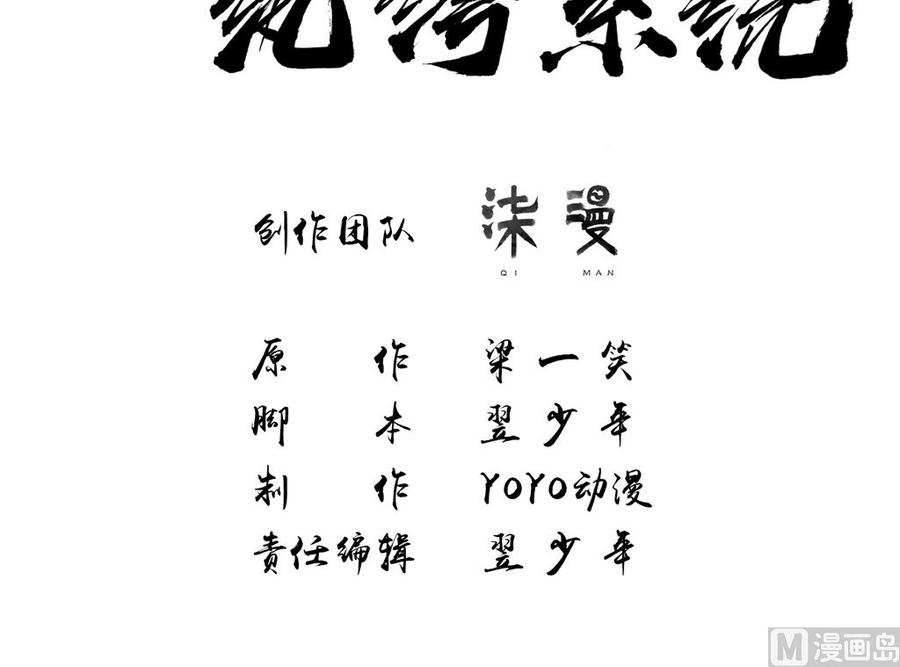 纨绔系统
创作团队 柒漫
QI MAN
原作 梁一笑
脚本 翌少年
制作 YOYO动漫
责任编辑 翌少年
M 漫画岛